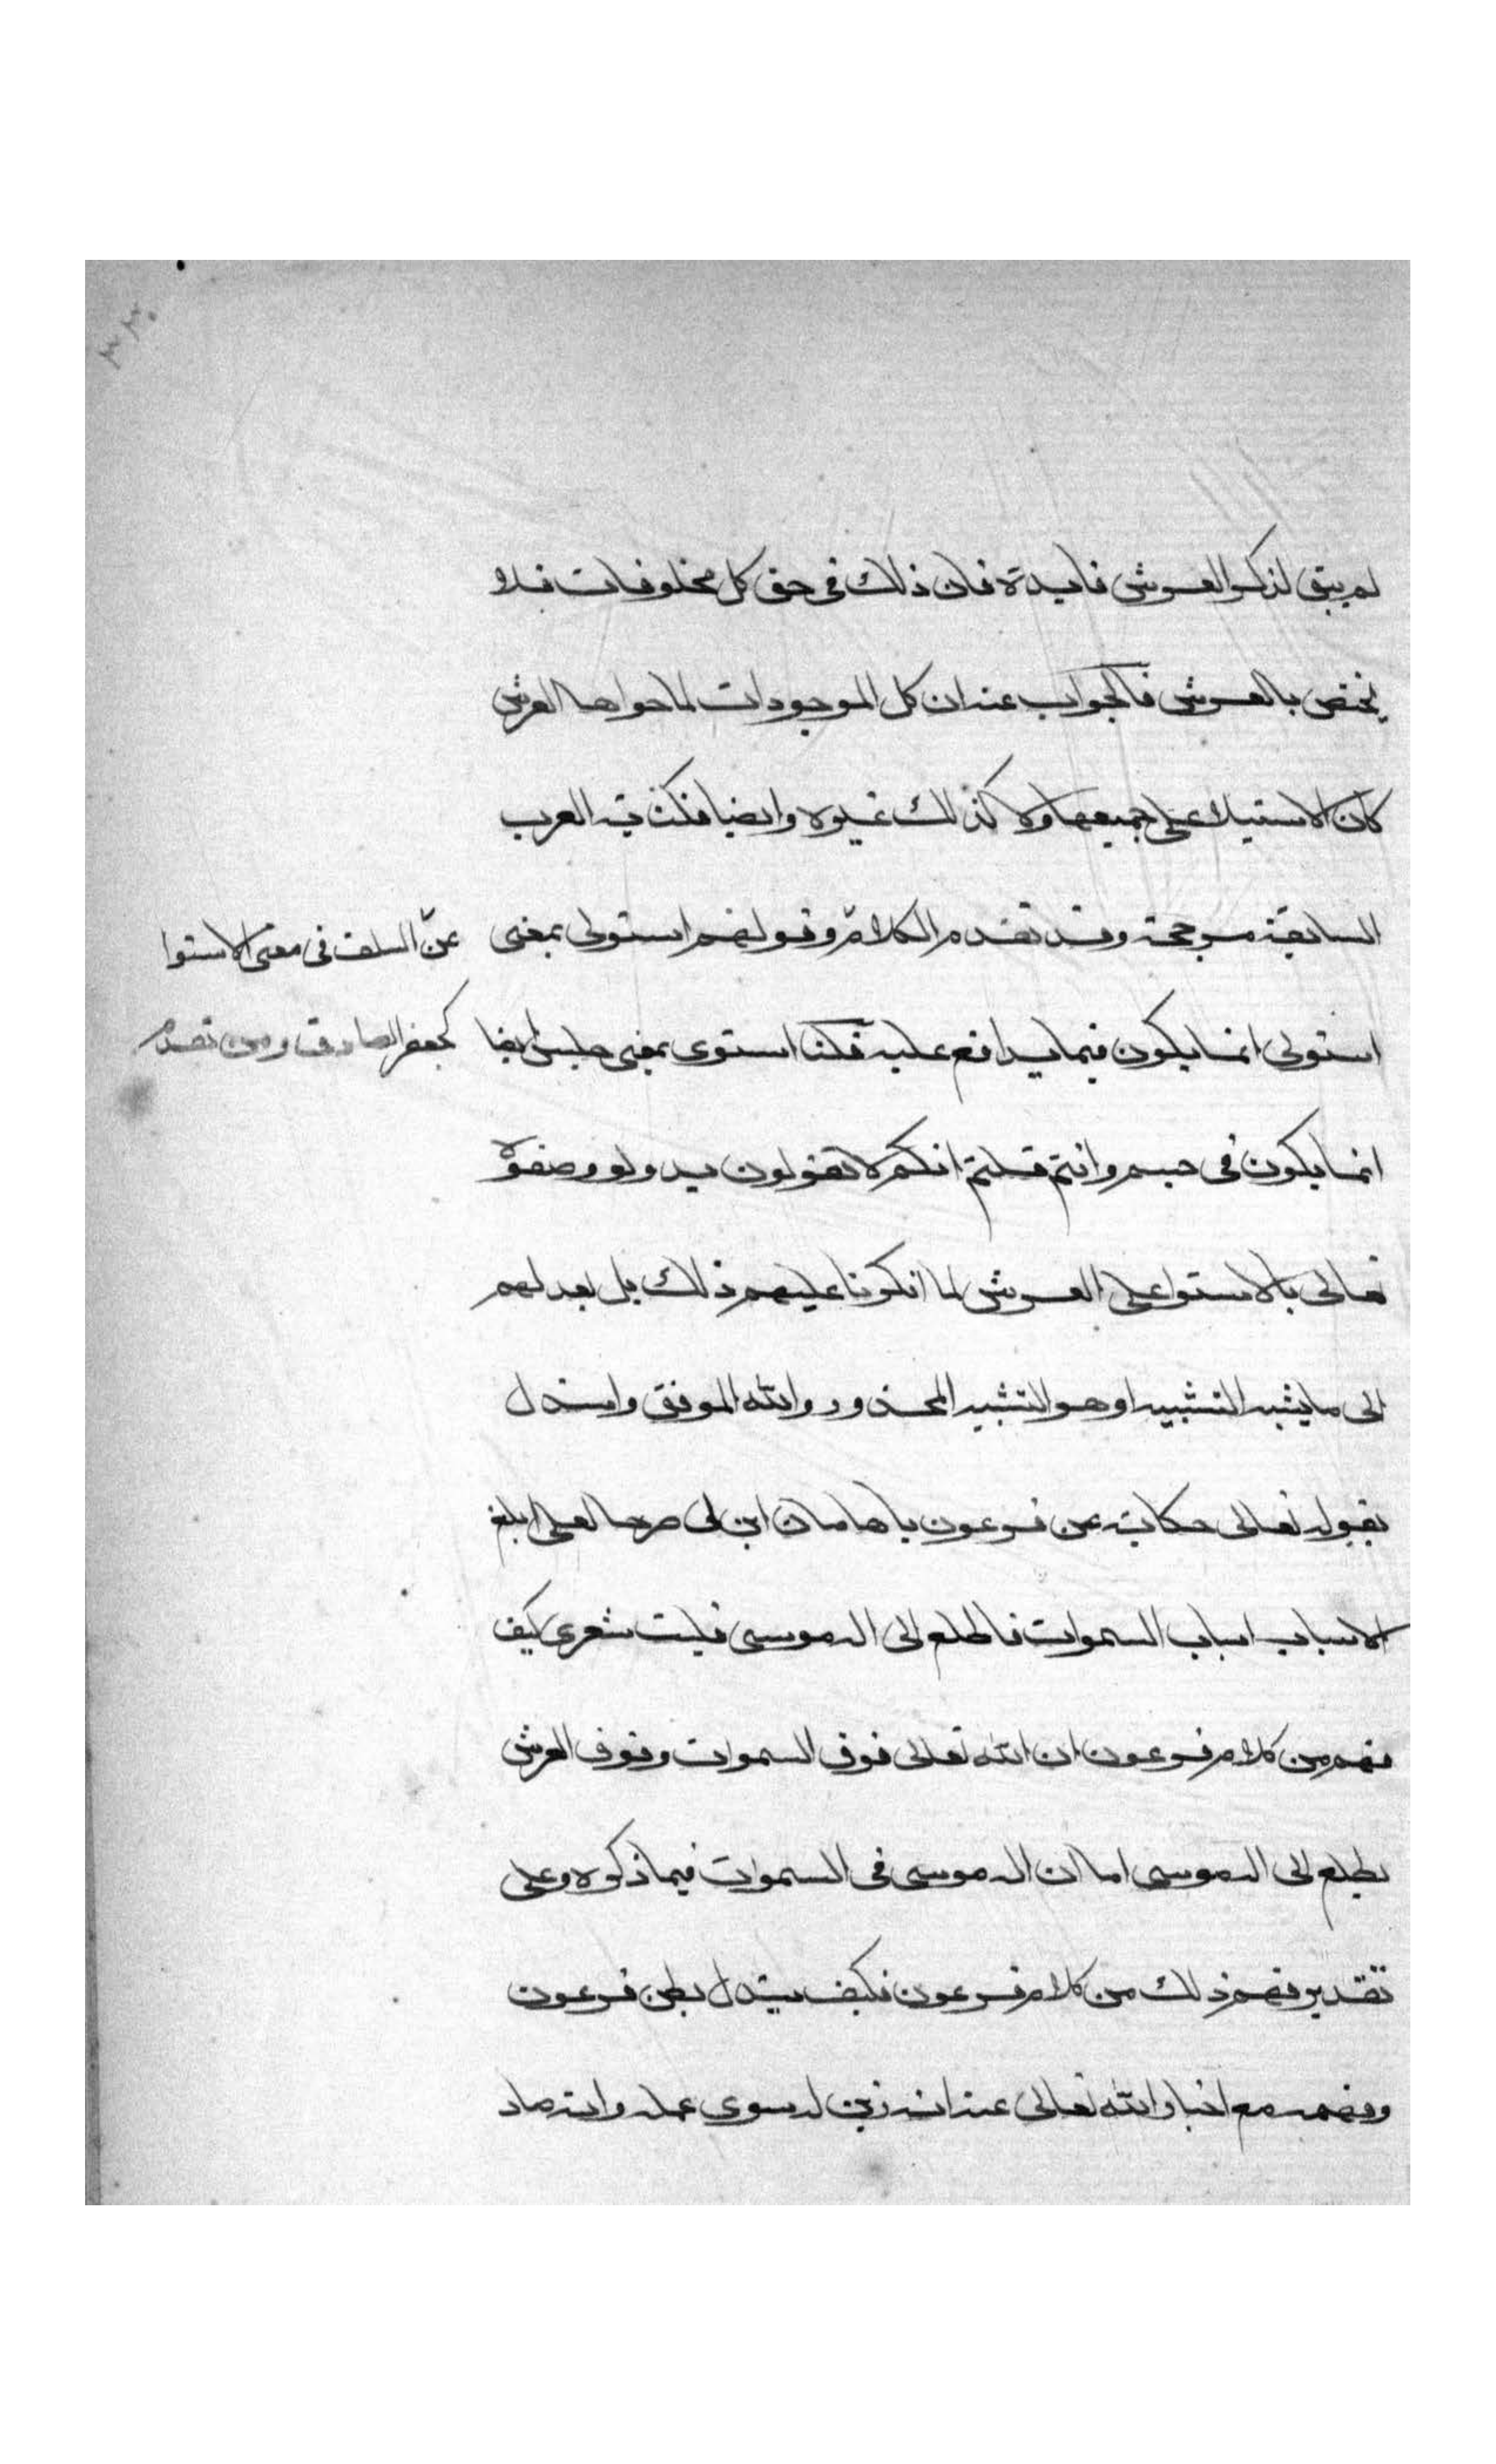 ٣٣٠
لم يبق لذكر العرش فايدة فان ذلك فى حق كل مخلوقات فلا
يختص بالعرش فالجواب عنه ان كل الموجودات لما حواها العرش
كان الاستيلا على جميعها ولا كذلك غيره وايضا فكنـ ية العرب
السابقة مرجحة وقد تقدم الكلام وقولهم استولى بمعنى
عن السلف فى معنى الاستوا
استولى انما يكون فيما يدافع عليه قلنا استوى بمعنى جلس ايضا
كجعفر الصادق ومن تقدم
انما يكون فى جسم وانتم قلتم انكم لا تقولون به ولو وصفوه
تعالى بالاستوا على العرش لما انكرنا عليهم ذلك بل بعد لهم
الى ما يشبه التشبيه او هو التشبيه المحذور والله الموفق واستدل
بقوله تعالى حكاية عن فرعون ياهامان ابن لى صرحا لعلى ابلغ
الاسباب اسباب السموات فاطلع الى اله موسى فليت شعرى كيف
فهم من كلام فرعون ان الله تعالى فوق السموات وفوق العرش
يطلع الى اله موسى اما ان اله موسى فى السموات فيما ذكره وعلى
تقدير فهم ذلك من كلام فرعون فكيف يستدل بظن فرعون
وفهمه مع اخبار الله تعالى عنه انه زين له سوى عمله وانه حاد